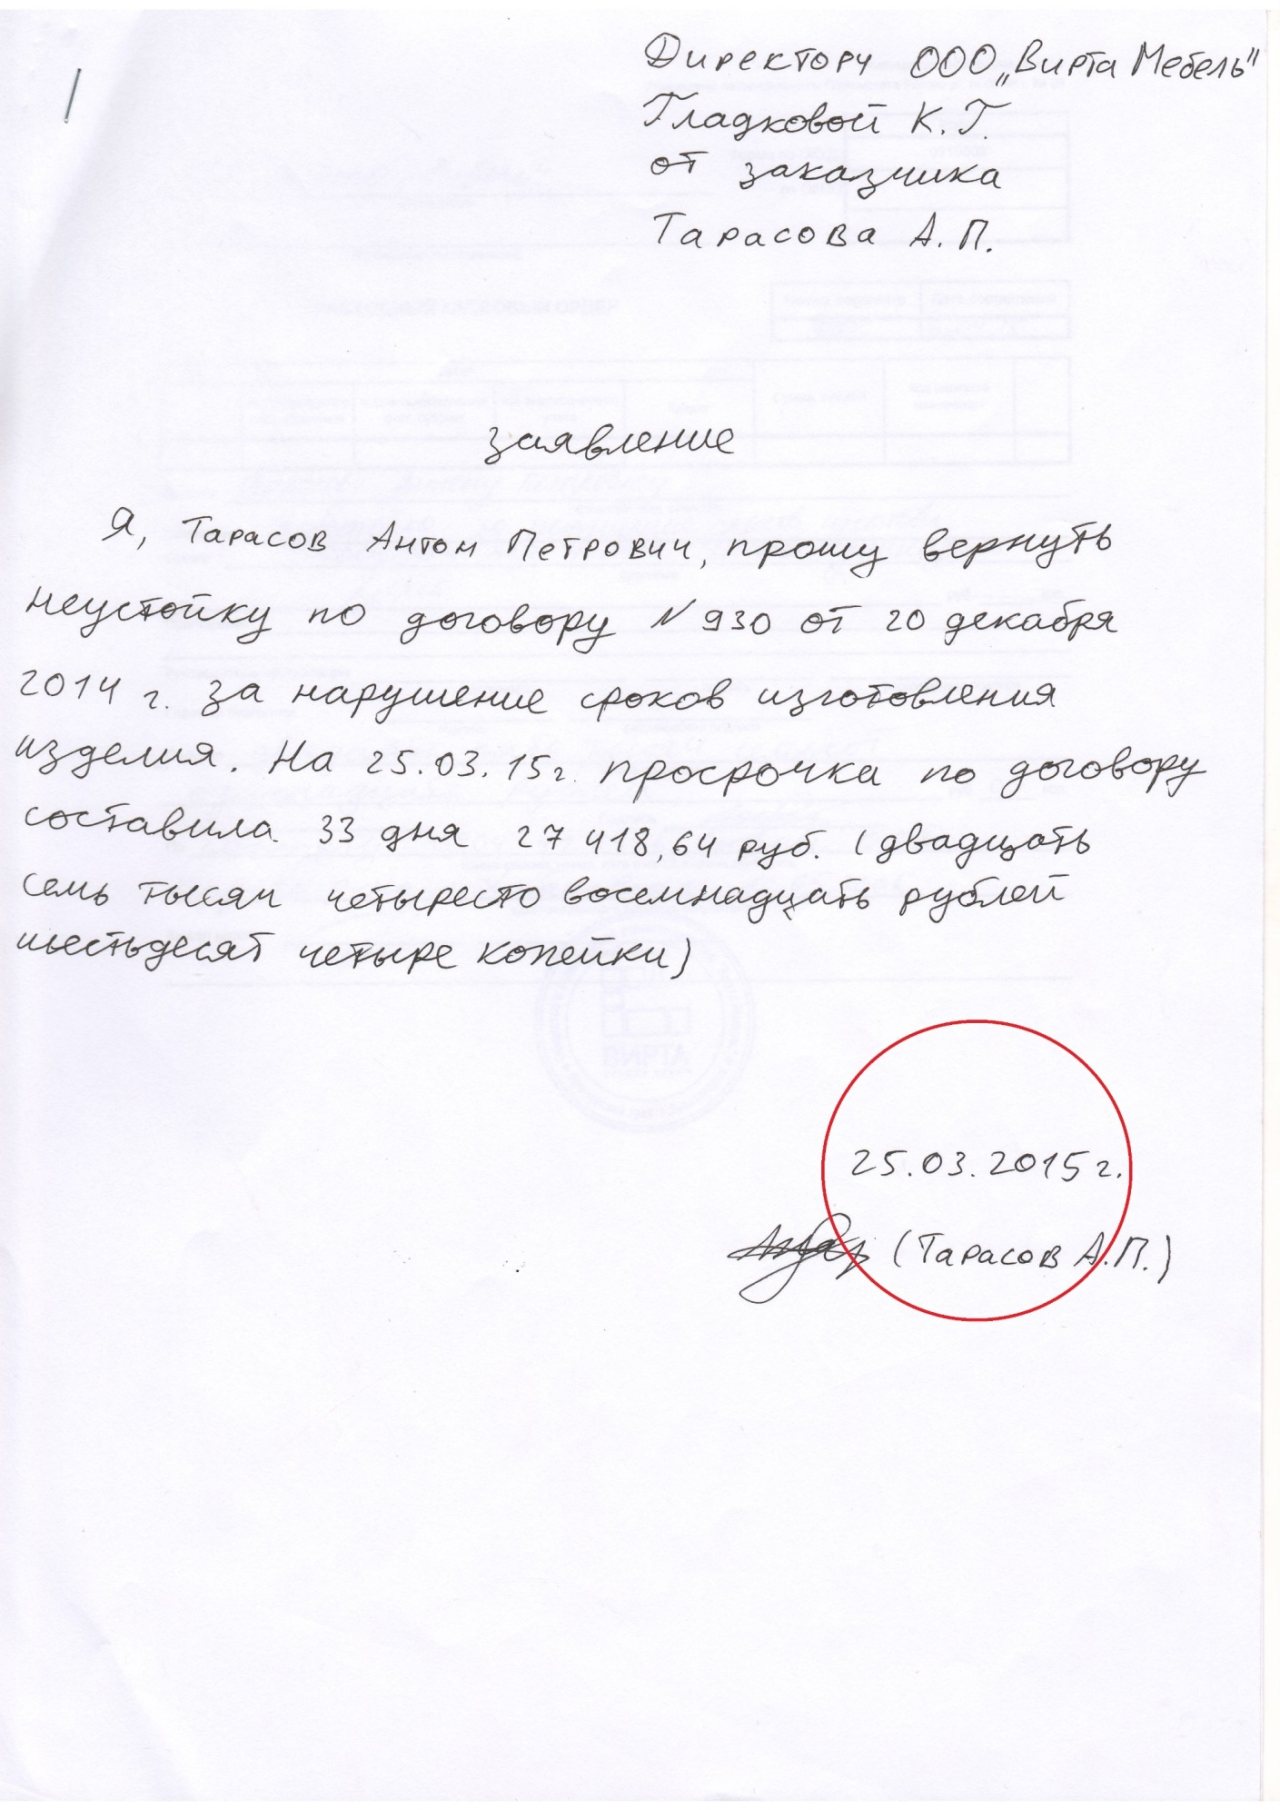 Директору ООО „Вирта Мебель"
Гладковой К.Г.
от заказчика
Тарасова А.П.
заявление
Я, Тарасов Антон Петрович, прошу вернуть
неустойку по договору N 930 от 20 декабря
2014 г. за нарушение сроков изготовления
изделия. На 25.03.15г. просрочка по договору
составила 33 дня 27 418,64 руб. (двадцать
семь тысяч четыресто восемнадцать рублей
шестьдесят четыре копейки)
ВИРТА
25.03.2015 г.
(Тарасов А.П.)